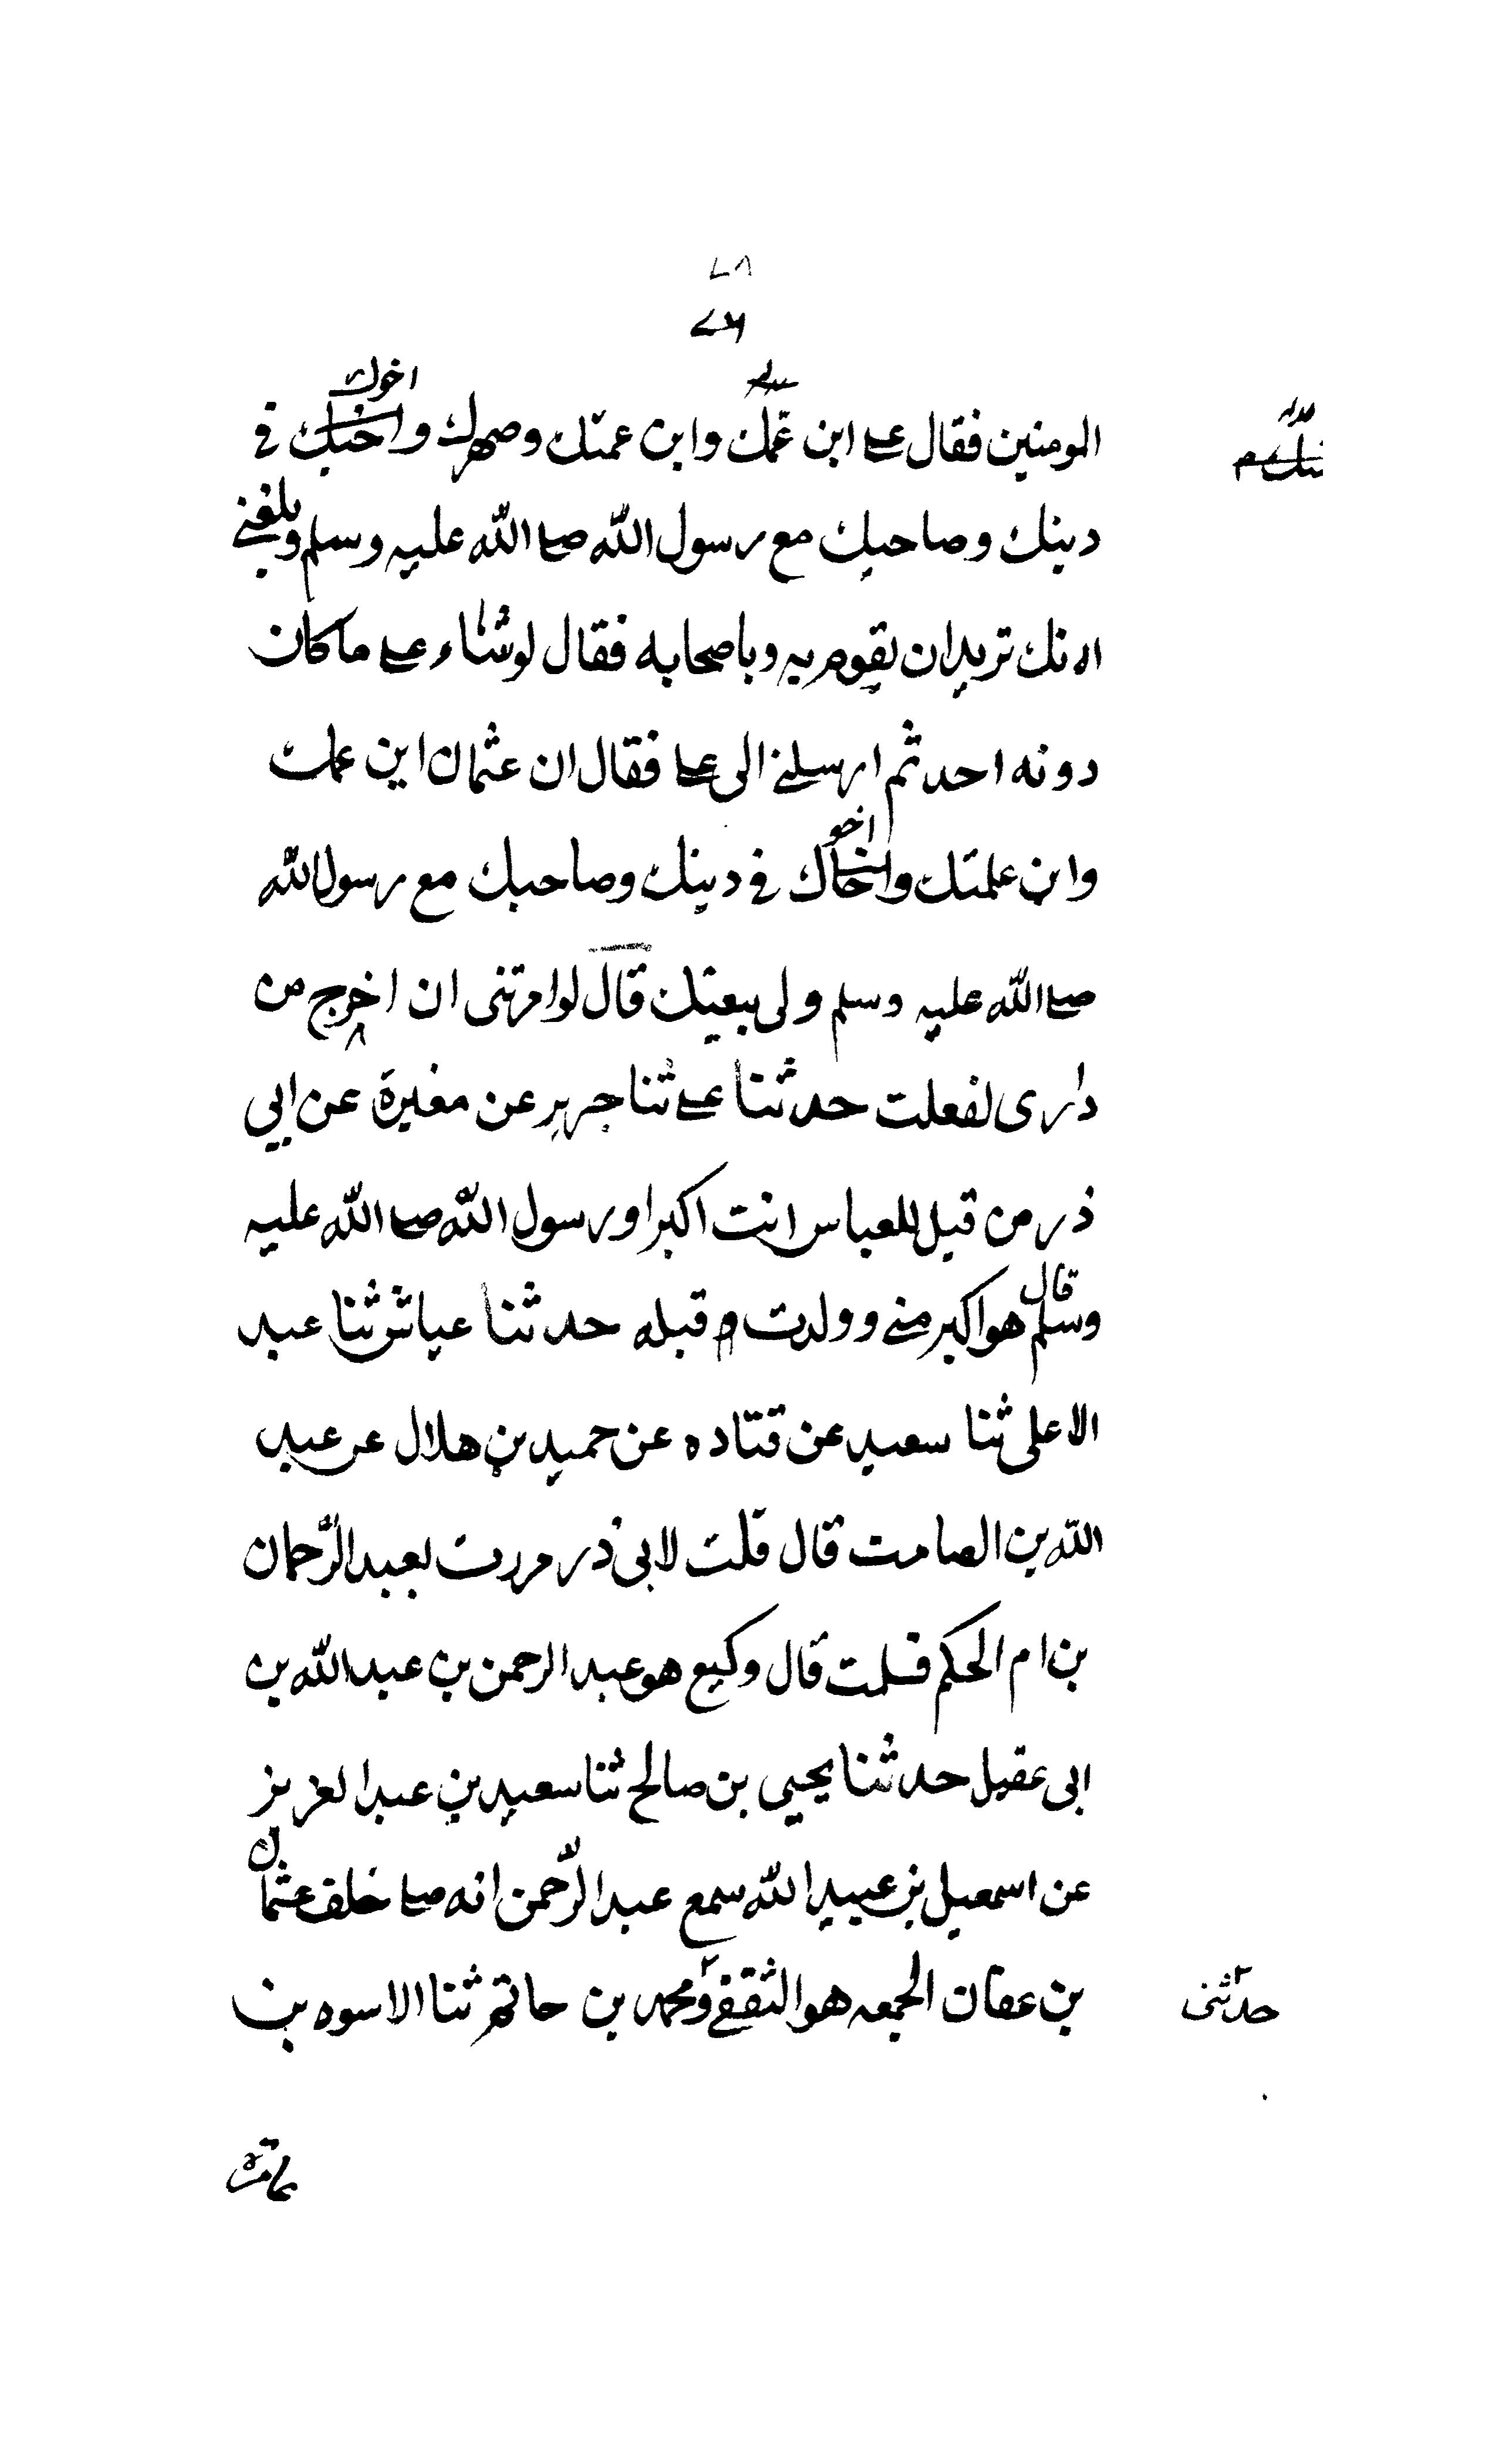 المومنين فقال على ابن عمك وابن عمتك وصهرك واخيك في
اخوك
دينك وصاحبك مع رسول الله صلى الله عليه وسلم وبلغني
انك تريد ان تقوم به وباصحابه فقال لو شاء على ما كان
دونه احد ثم ارسلني الى على فقال ان عثمان ابن عمك
وابن عمتك واخاك في دينك وصاحبك مع رسول الله
اخو
صلى الله عليه وسلم ولى بيعتك قال لو امرتنى ان اخرج من
دارى لفعلت حدثنا على ثنا جرير عن مغيرة عن ابي
ذر من قيل للعباس انت اكبر او رسول الله صلى الله عليه
وسلم قال هو اكبر منى وولدت قبله حدثنا عياش ثنا عبد
الاعلى ثنا سعيد عن قتاده عن حميد بن هلال عن عبد
الله بن الصامت قال قلت لابى ذر مررت بعبد الرحمان
بن ام الحكم قلت قال وكيع هو عبد الرحمن بن عبد الله بن
ابى عقيل حدثنا يحيى بن صالح ثنا سعيد بن عبد العزيز
عن اسمعيل بن عبيد الله سمع عبد الرحمن انه صلى خلف عثمان
بن عفان الجمعه هو الثقفي ومحمد بن حاتم ثنا الاسود بن
حدثنى